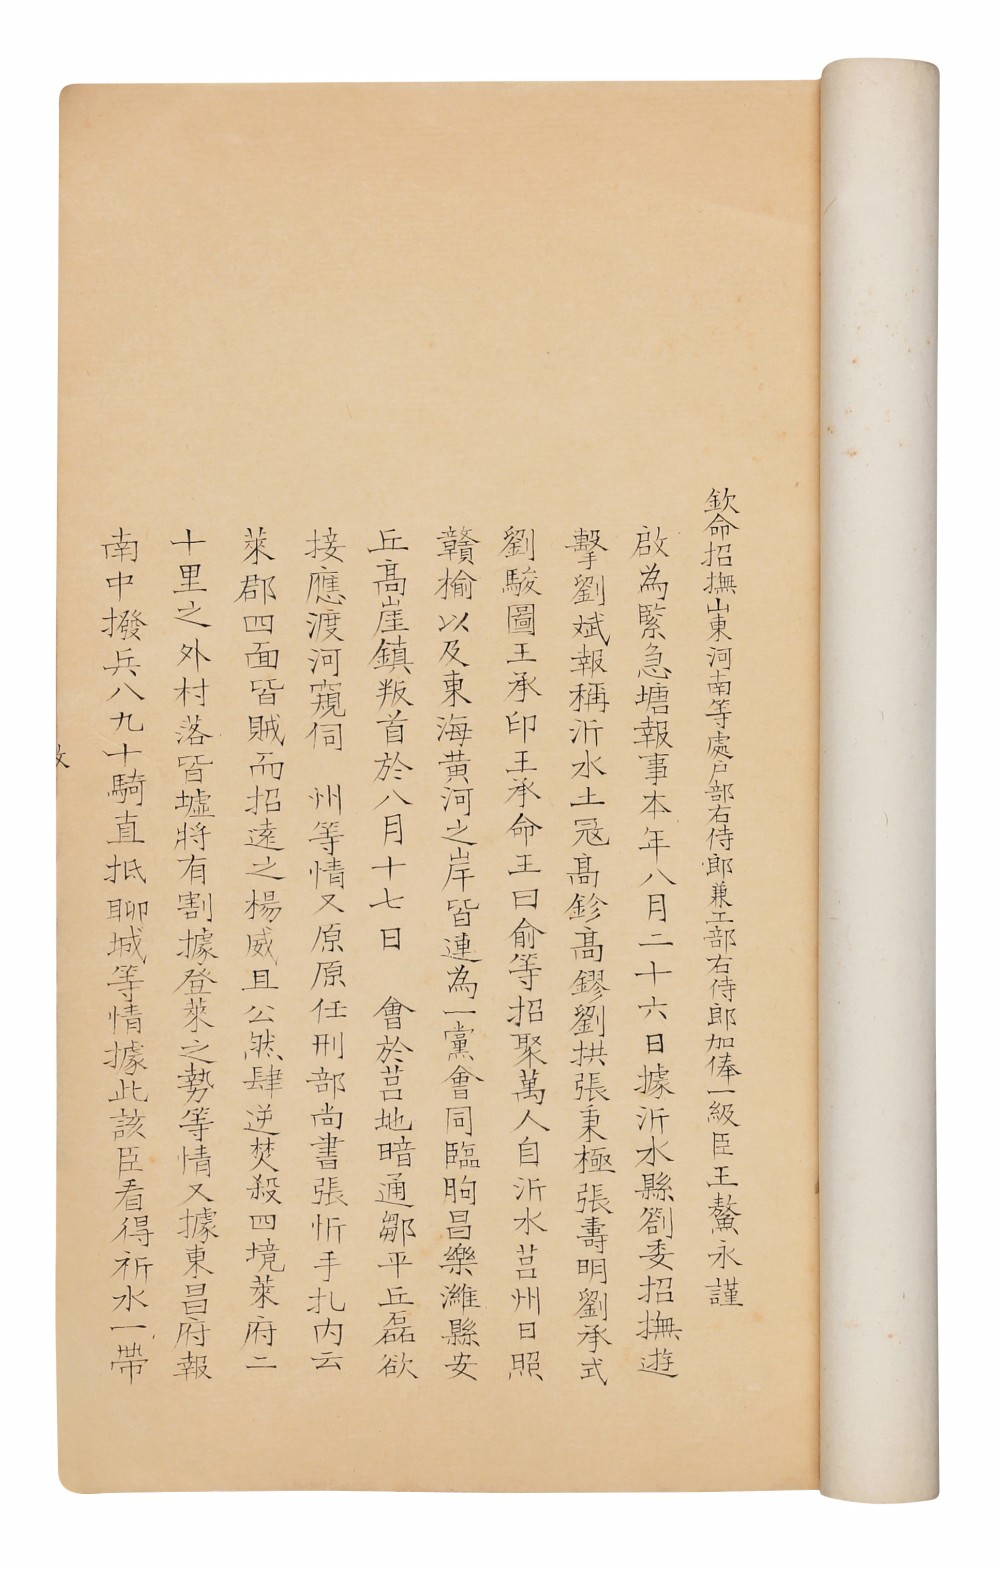 欽命招撫山東河南等處戶部右侍郎兼工部右侍郎加俸一級臣王鰲永謹
啟為緊急塘報事本年八月二十六日據沂水縣劄委招撫遊
擊劉斌報稱沂水土冦髙鉁髙鏐劉拱張秉極張壽明劉承式
劉駿圖王承印王承命王曰俞等招聚萬人自沂水莒州日照
贛榆以及東海黃河之岸皆連為一黨會同臨朐昌樂濰縣安
丘髙崖鎮叛首於八月十七日 會於莒地暗通鄒平丘磊欲
接應渡河窺伺 州等情又原原任刑部尚書張忻手扎内云
萊郡四面皆賊而招遠之楊威且公然肆逆焚殺四境萊府二
十里之外村落皆墟將有割據登萊之勢等情又據東昌府報
南中撥兵八九十騎直抵聊城等情據此該臣看得祈水一帶